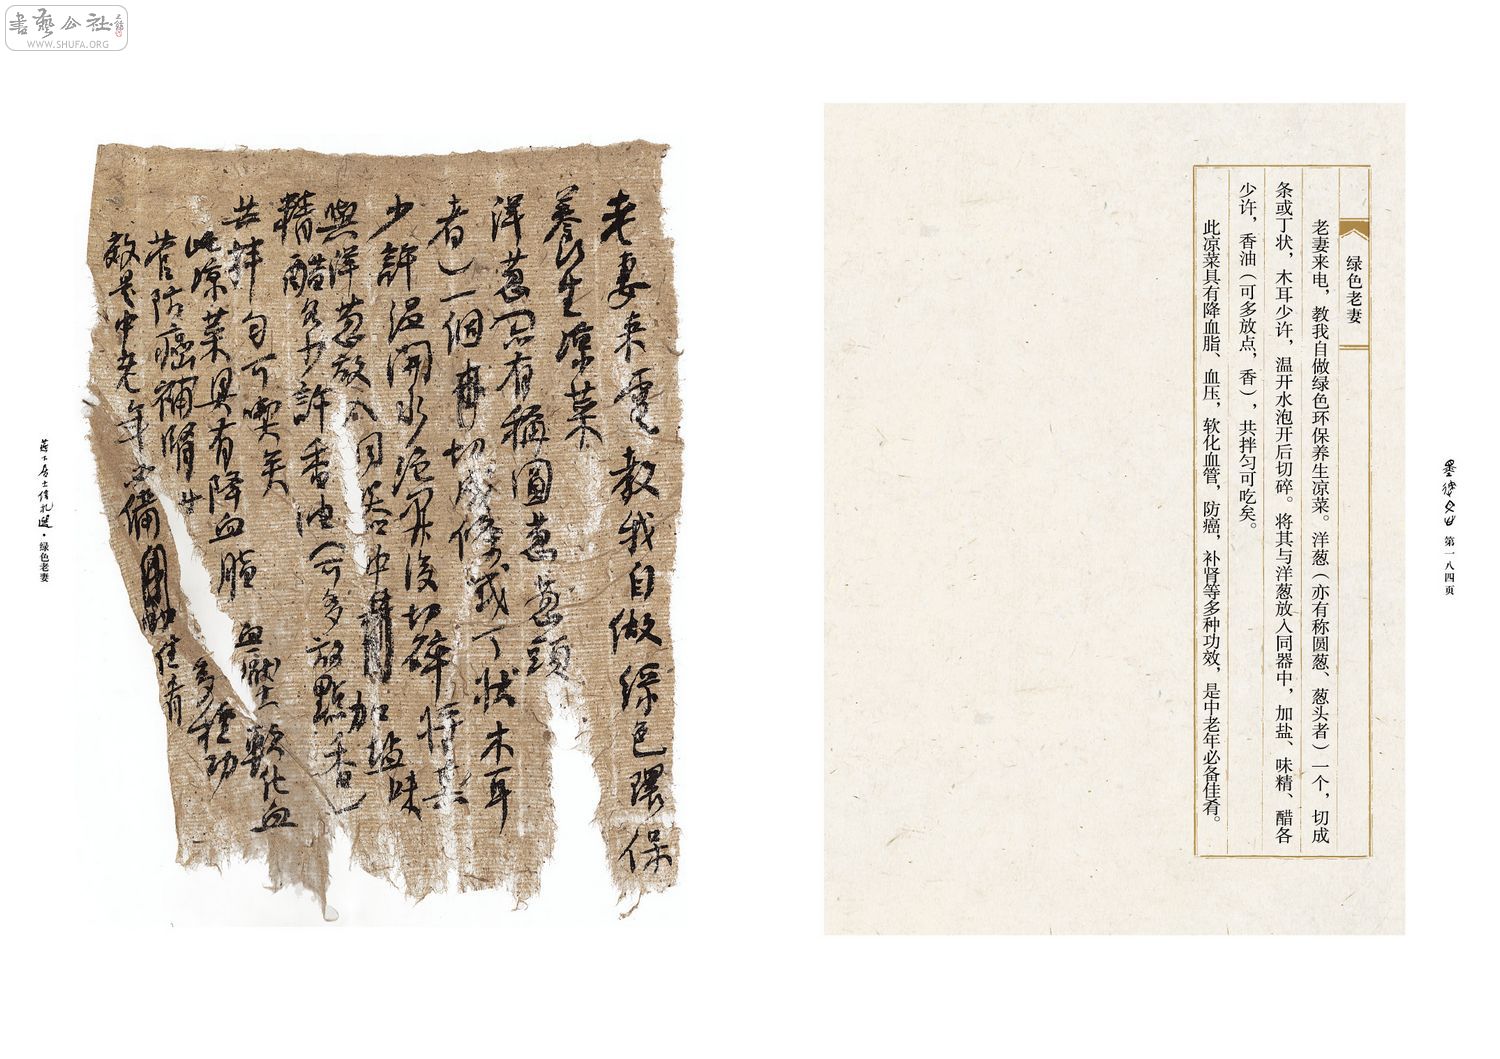 書藝公社
WWW.SHUFA.ORG
第一八四页
绿色老妻
老妻来电，教我自做绿色环保养生凉菜。洋葱（亦有称圆葱、葱头者）一个，切成
条或丁状，木耳少许，温开水泡开后切碎。将其与洋葱放入同器中，加盐、味精、醋各
少许，香油（可多放点，香），共拌匀可吃矣。
此凉菜具有降血脂、血压，软化血管，防癌，补肾等多种功效，是中老年必备佳肴。
老妻来電教我自做綠色環保
養生凉菜
洋葱亦有稱圓葱葱頭
者）一個切成條或丁状木耳
少許温開水泡开後切碎将其
與洋葱放入同器中加塩味
精醋各少許香油（可多放點香）
共拌匀可喫矣
此凉菜具有降血脂血壓軟化血
管防癌補腎等多種功
效是中老年必備佳肴
居士信札選·绿色老妻